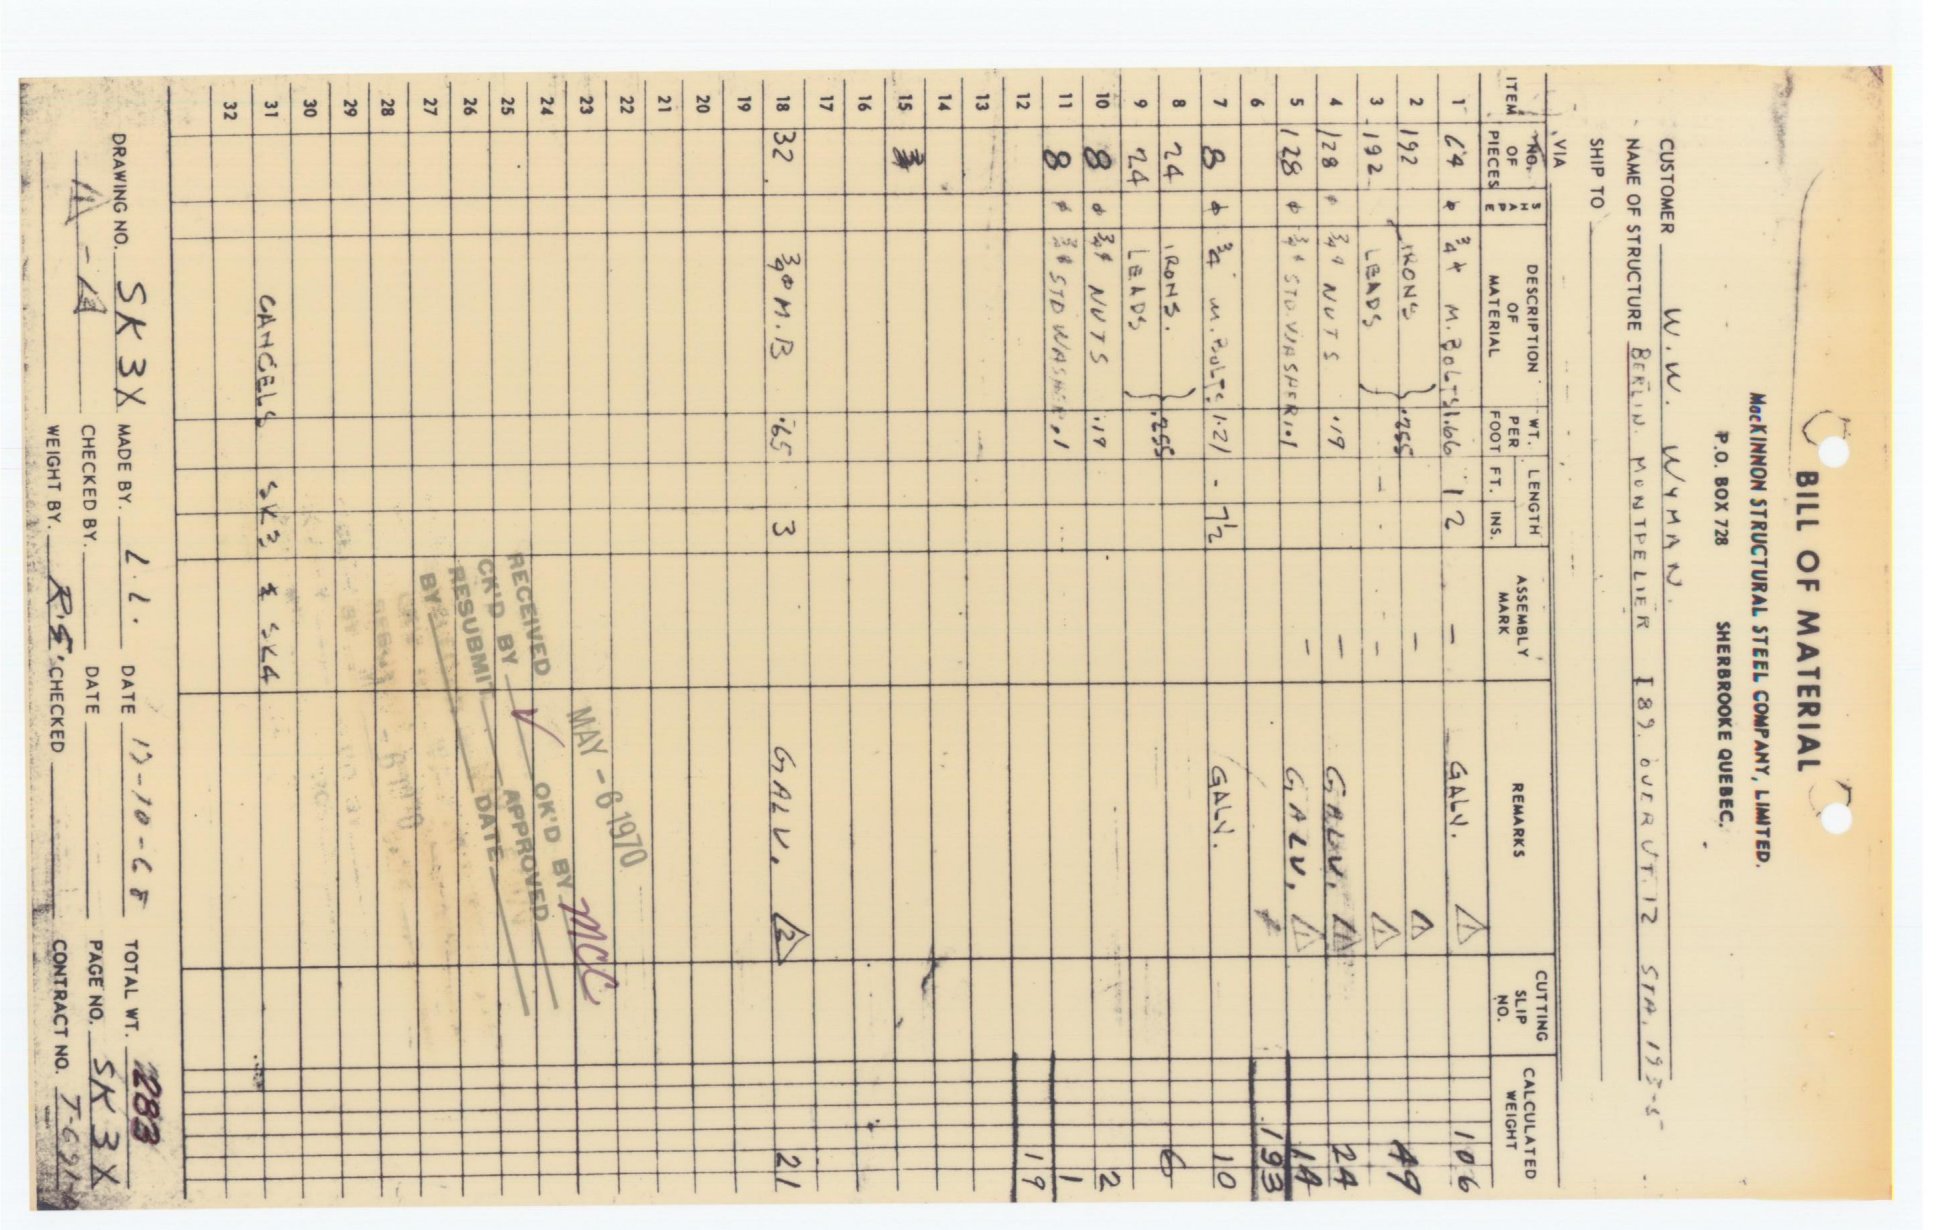 BILL OF MATERIAL
MacKINNON STRUCTURAL STEEL COMPANY, LIMITED.
P.O. BOX 728 SHERBROOKE QUEBEC.
CUSTOMER W. W. WYMAN.
NAME OF STRUCTURE BERLIN. MONTPELIER I 89 OVER VT. 12 STA. 193-5
SHIP TO
VIA
ITEM NO. OF PIECES SHAPE DESCRIPTION OF MATERIAL WT. PER FOOT LENGTH FT. INS. ASSEMBLY MARK REMARKS CUTTING SLIP NO. CALCULATED WEIGHT
1 64 φ 3/4 φ M. BOLTS 1.66 1 2 – GALV. 1 106
2 192 IRONS } .255 – 1 49
3 192 LEADS – – 1
4 128 φ 3/4 φ NUTS .19 – GALV. 1 24
5 128 φ 3/4 φ STD. WASHER .1 – GALV. 1 14
6 193
7 8 φ 3/4 M. BOLTS 1.21 - 7 1/2 GALV. 10
8 24 IRONS. } .255 6
9 24 LEADS
10 8 φ 3/4 φ NUTS .19 2
11 8 φ 3/4 φ STD WASHER .1 1
12 19
13
14
15
16
17
18 32 3/4 φ M.B .65 3 GALV. 2 21
19
20
21
22
23
24
25
26
27
28
29
30
31 CANCELS SK3 & SK4
32
MAY - 6 1970
RECEIVED
CK'D BY OK'D BY MCC
RESUBMIT APPROVED
BY DATE
DRAWING NO. SK 3X MADE BY. L. L. DATE 17-10-68 TOTAL WT. 283
CHECKED BY. DATE PAGE NO. SK 3X
WEIGHT BY. CHECKED CONTRACT NO.